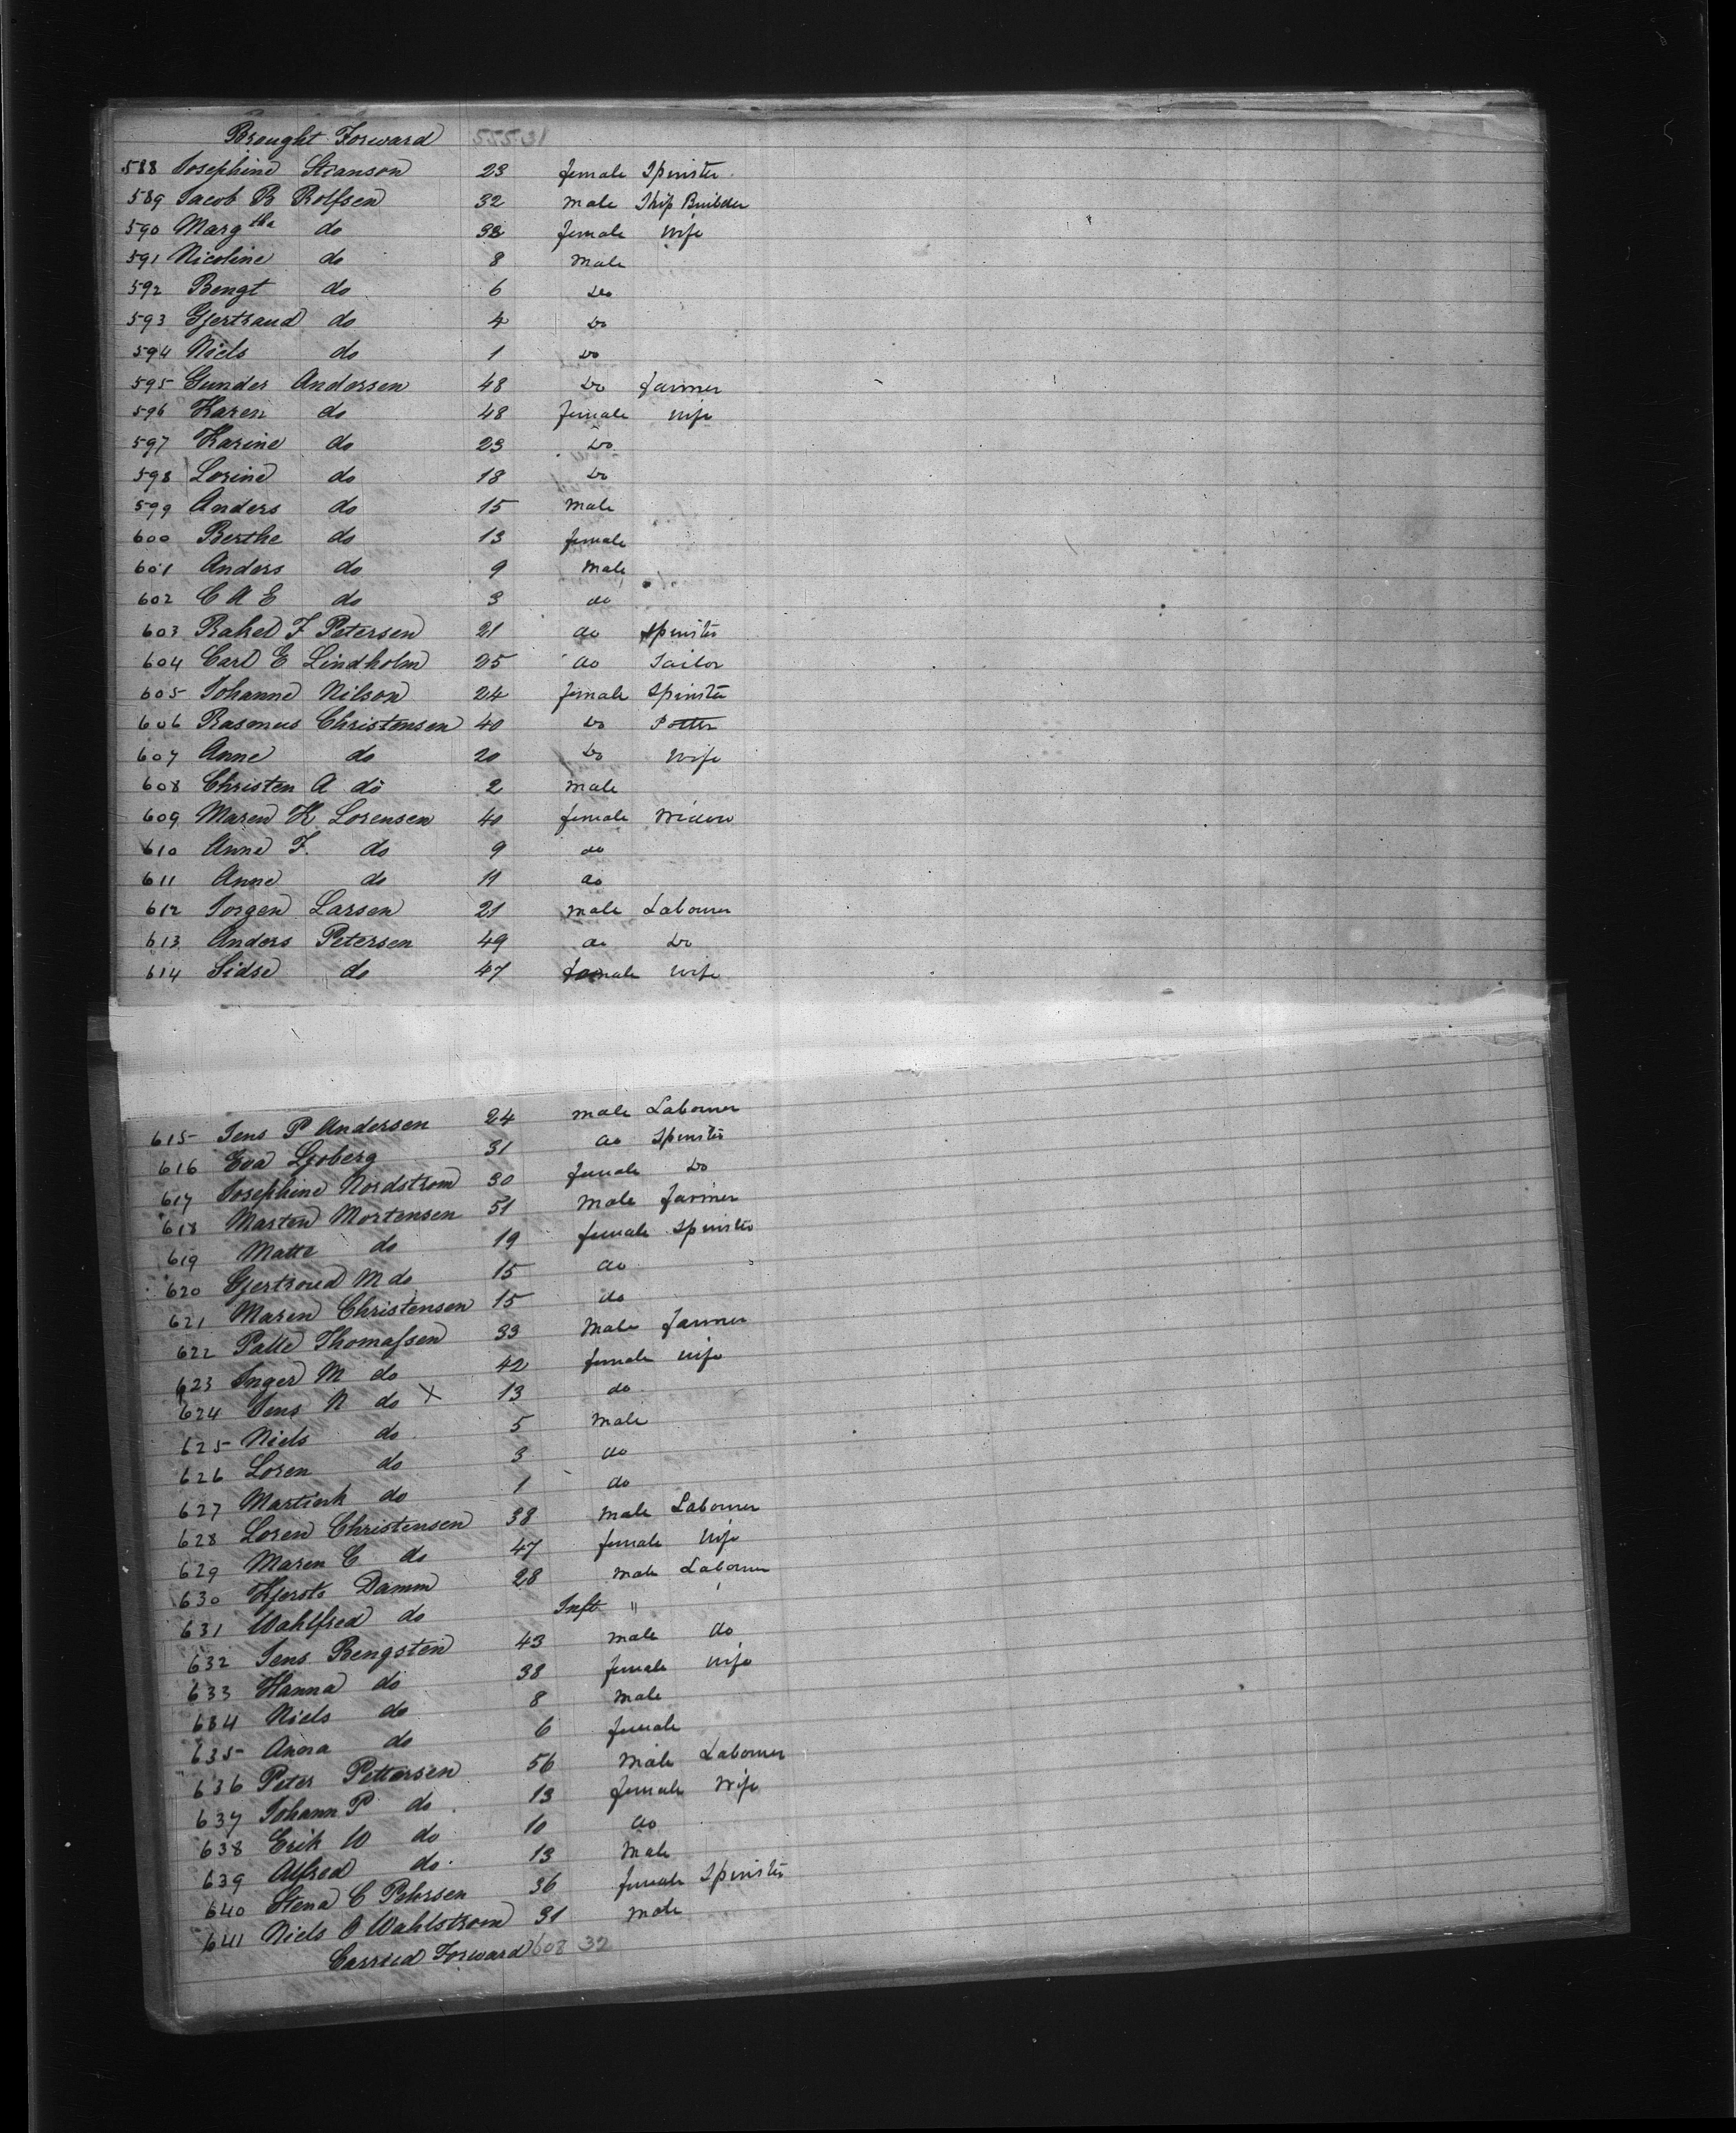 Brought Forward 555 31
588 Josephine Swanson 23 female Spinster
589 Jacob B Rolfsen 32 male Ship Builder
590 Margtha do 32 female wife
591 Nicoline do 8 Male
592 Bengt do 6 Do
593 Gjertraud do 4 Do
594 Niels do 1 Do
595 Gunder Andersen 48 Do farmer
596 Karen do 48 female wife
597 Karine do 23 Do
598 Lorine do 18 Do
599 Anders do 15 Male
600 Berthe do 13 female
601 Anders do 9 Male
602 C A E do 3 do
603 Rahel J Petersen 21 do Spinster
604 Carl E Lindholm 25 do Tailor
605 Johanne Nilson 24 female Spinster
606 Rasmus Christensen 40 Do Potter
607 Anne do 20 Do Wife
608 Christen A do 2 male
609 Maren K Lorensen 40 female Widow
610 Anne F. do 9 do
611 Anne do 11 do
612 Jorgen Larsen 21 male Labourer
613 Anders Petersen 49 do Do
614 Sidse do 47 female wife
615 Jens P Andersen 24 male Labourer
616 Eva Ljoberg 31 do Spinster
617 Josephine Nordstrom 30 female Do
618 Marten Mortensen 51 Male farmer
619 Matte do 19 female Spinster
620 Gjertroud M do 15 do
621 Maren Christensen 15 do
622 Palle Thomassen 33 Male farmer
623 Inger M do 42 female wife
624 Jens N do X 13 do
625 Niels do 5 Male
626 Loren do 3 do
627 do 1 do
628 Loren Christensen 38 Male Labourer
629 Maren C do 47 female Wife
630 Kjersto Damm 28 Male Labourer
631 Wahlfred do Inft "
632 Jens Bengsten 43 male do
633 Hanna do 38 female Wife
634 Niels do 8 Male
635 Anna do 6 female
636 Peter Pettersen 56 Male Labourer
637 Johann P do 13 female Wife
638 Erik W do 10 do
639 Alfred do 13 Male
640 Stena C Pehrsen 36 female Spinster
641 Niels O Wahlstrom 31 male
Carried Forward 608 32